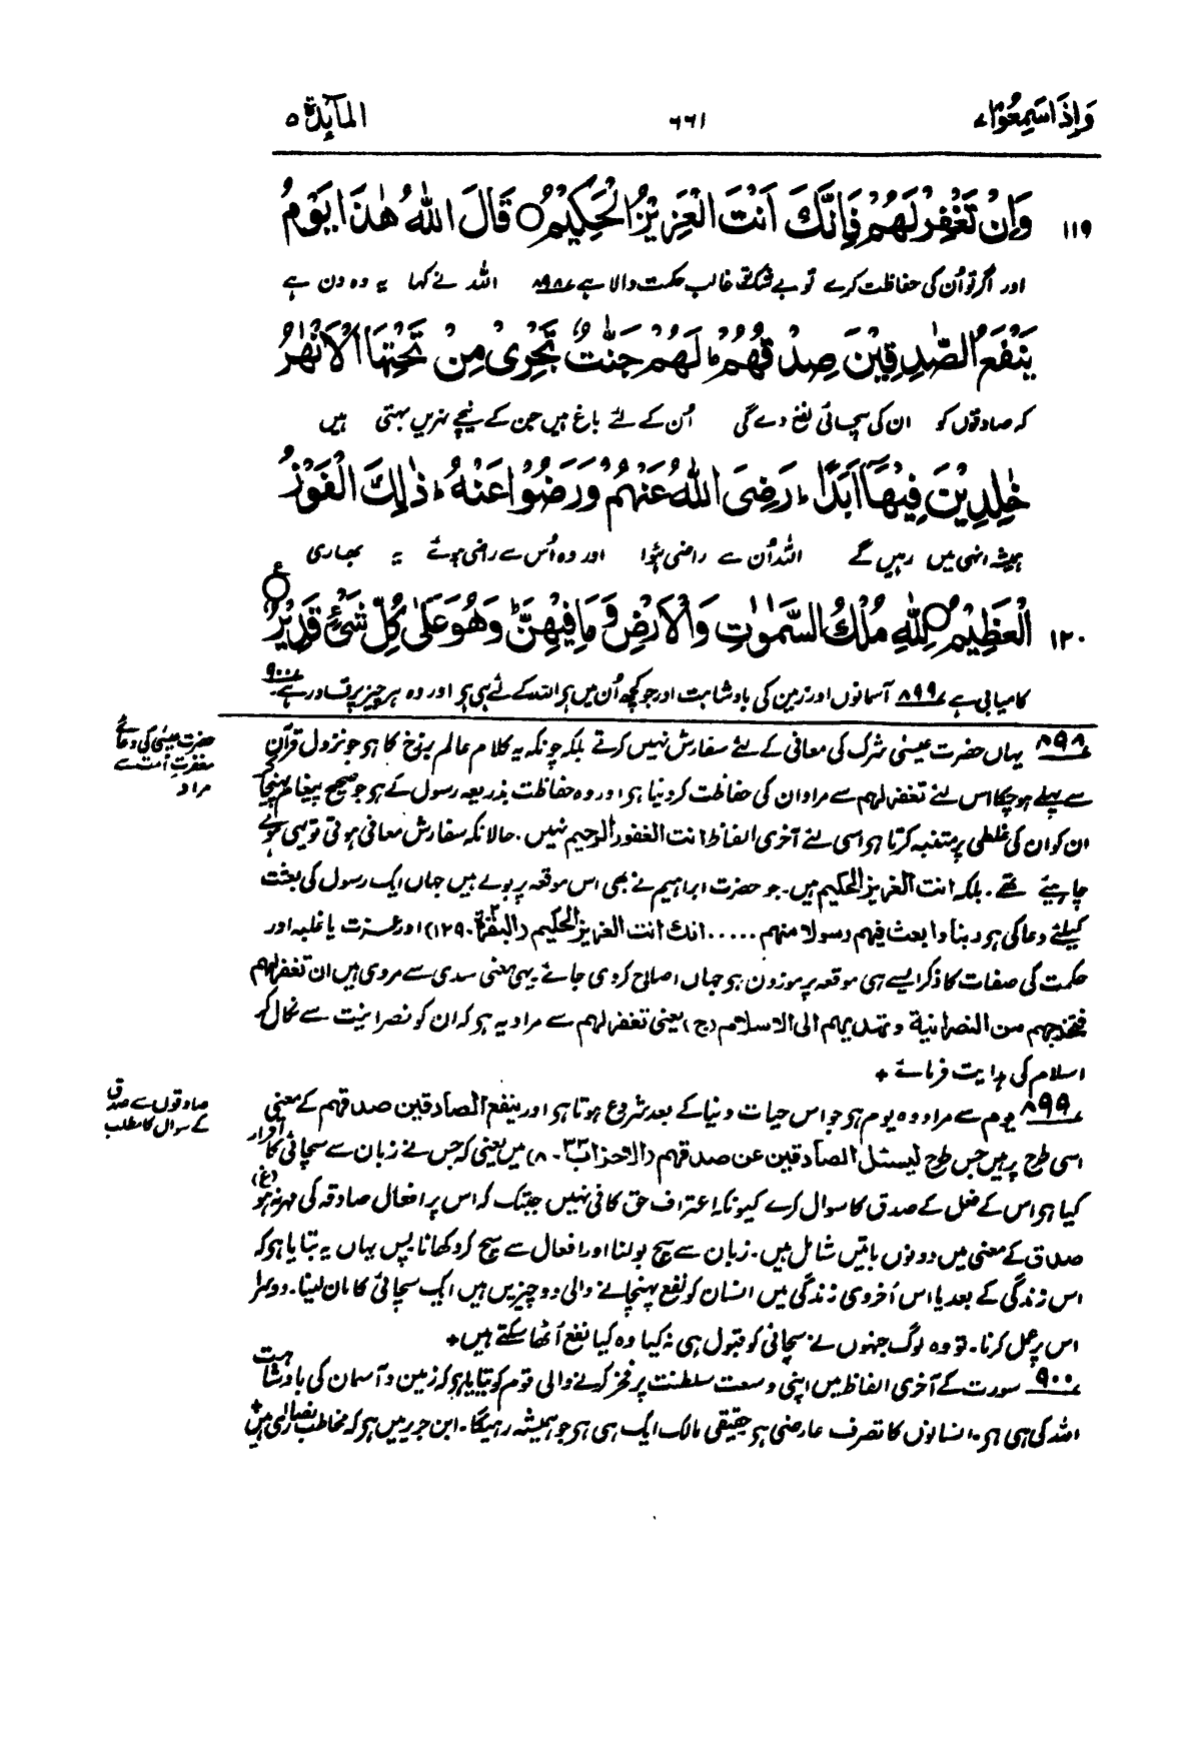 وَاِذَا سَمِعُوْا ۷ ۶۶۱ المآئدۃ ۵
۱۱۹ وَاِنْ تَغْفِرْ لَهُمْ فَاِنَّكَ اَنْتَ الْعَزِيْزُ الْحَكِيْمُ ○ قَالَ اللّٰهُ هٰذَا يَوْمُ
اور اگر تو اُن کی حفاظت کرے تو بے شک تو غالب حکمت والا ہے ۸۹۸ اللہ نے کہا یہ وہ دن ہے
يَنْفَعُ الصّٰدِقِيْنَ صِدْقُهُمْ ؕ لَهُمْ جَنّٰتٌ تَجْرِىْ مِنْ تَحْتِهَا الْاَنْهٰرُ
کہ صادقوں کو ان کی سچائی نفع دے گی اُن کے لئے باغ ہیں جن کے نیچے نہریں بہتی ہیں
خٰلِدِيْنَ فِيْهَآ اَبَدًا ؕ رَضِىَ اللّٰهُ عَنْهُمْ وَرَضُوْا عَنْهُ ؕ ذٰلِكَ الْفَوْزُ
ہمیشہ انہی میں رہیں گے اللہ اُن سے راضی ہُوا اور وہ اُس سے راضی ہوئے یہ بھاری
۱۲۰ الْعَظِيْمُ ○ لِلّٰهِ مُلْكُ السَّمٰوٰتِ وَالْاَرْضِ وَمَا فِيْهِنَّ ؕ وَهُوَ عَلٰى كُلِّ شَىْءٍ قَدِيْرٌ ○ ع
کامیابی ہے ۸۹۹ آسمانوں اور زمین کی بادشاہت اور جو کچھ اُن میں ہو اللہ کے لئے ہی ہو اور وہ ہر چیز پر قادر ہے ۹۰۰
حضرت عیسیٰ کی دعائے
مغفرت امت سے
مراد
۸۹۸ یہاں حضرت عیسیٰ شرک کی معافی کے لئے سفارش نہیں کرتے بلکہ چونکہ یہ کلام عالم برزخ کا ہو جو نزول قرآن
سے پہلے ہو چکا اس لئے تغفر لہم سے مراد ان کی حفاظت کر دینا ہو اور وہ حفاظت بذریعہ رسول کے ہو جو صحیح پیغام پہنچا کر
ان کو ان کی غلطی پر متنبہ کرتا ہو اسی لئے آخری الفاظ انت الغفور الرحیم نہیں۔ حالانکہ سفارش معافی ہوتی تو یہی ہونے
چاہیئے تھے۔ بلکہ انت العزیز الحکیم ہیں۔ جو حضرت ابراہیم نے بھی اس موقعہ پر بولے ہیں جہاں ایک رسول کی بعثت
کیلئے دعا کی ہو ربنا وابعث فیہم رسولا منہم ..... انک انت العزیز الحکیم (البقرۃ ۲۔ ۱۲۹) اور عزت یا غلبہ اور
حکمت کی صفات کا ذکر ایسے ہی موقعہ پر موزون ہو جہاں اصلاح کر دی جائے یہی معنی سدی سے مروی ہیں ان تغفر لہم
فتخرجہم من النصرانیة وتہدیہم الی الاسلام (ج) یعنی تغفر لہم سے مراد یہ ہو کہ ان کو نصرانیت سے نکال کر
اسلام کی ہدایت فرمائے +
صادقوں سے صدق
کے سوال کا مطلب
۸۹۹ یوم سے مراد وہ یوم ہو جو اس حیات دنیا کے بعد شروع ہوتا ہو اور ینفع الصادقین صدقہم کے معنی
اسی طرح پر ہیں جس طرح لیسئل الصادقین عن صدقہم (الاحزاب ۳۳۔ ۸) میں یعنی کہ جس نے زبان سے سچائی کا اقرار
کیا ہو اس کے فعل کے صدق کا سوال کرے کیونکہ اعتراف حق کافی نہیں جبتک کہ اس پر افعال صادقہ کی مہر نہ ہو (غ)
صدق کے معنی میں دونوں باتیں شامل ہیں۔ زبان سے سچ بولنا اور افعال سے سچ کر دکھانا پس یہاں یہ بتایا ہو کہ
اس زندگی کے بعد یا اس اُخروی زندگی میں انسان کو نفع پہنچانے والی دو چیزیں ہیں ایک سچائی کا مان لینا۔ دوسرا
اس پر عمل کرنا۔ تو وہ لوگ جنہوں نے سچائی کو قبول ہی نہ کیا وہ کیا نفع اُٹھا سکتے ہیں +
۹۰۰ سورت کے آخری الفاظ میں اپنی وسعت سلطنت پر فخر کرنے والی قوم کو بتایا ہو کہ زمین و آسمان کی بادشاہت
اللہ کی ہی ہو۔ انسانوں کا تصرف عارضی ہو حقیقی مالک ایک ہی ہو جو ہمیشہ رہیگا۔ ابن جریر میں ہو کہ مخاطب نصاریٰ ہیں +